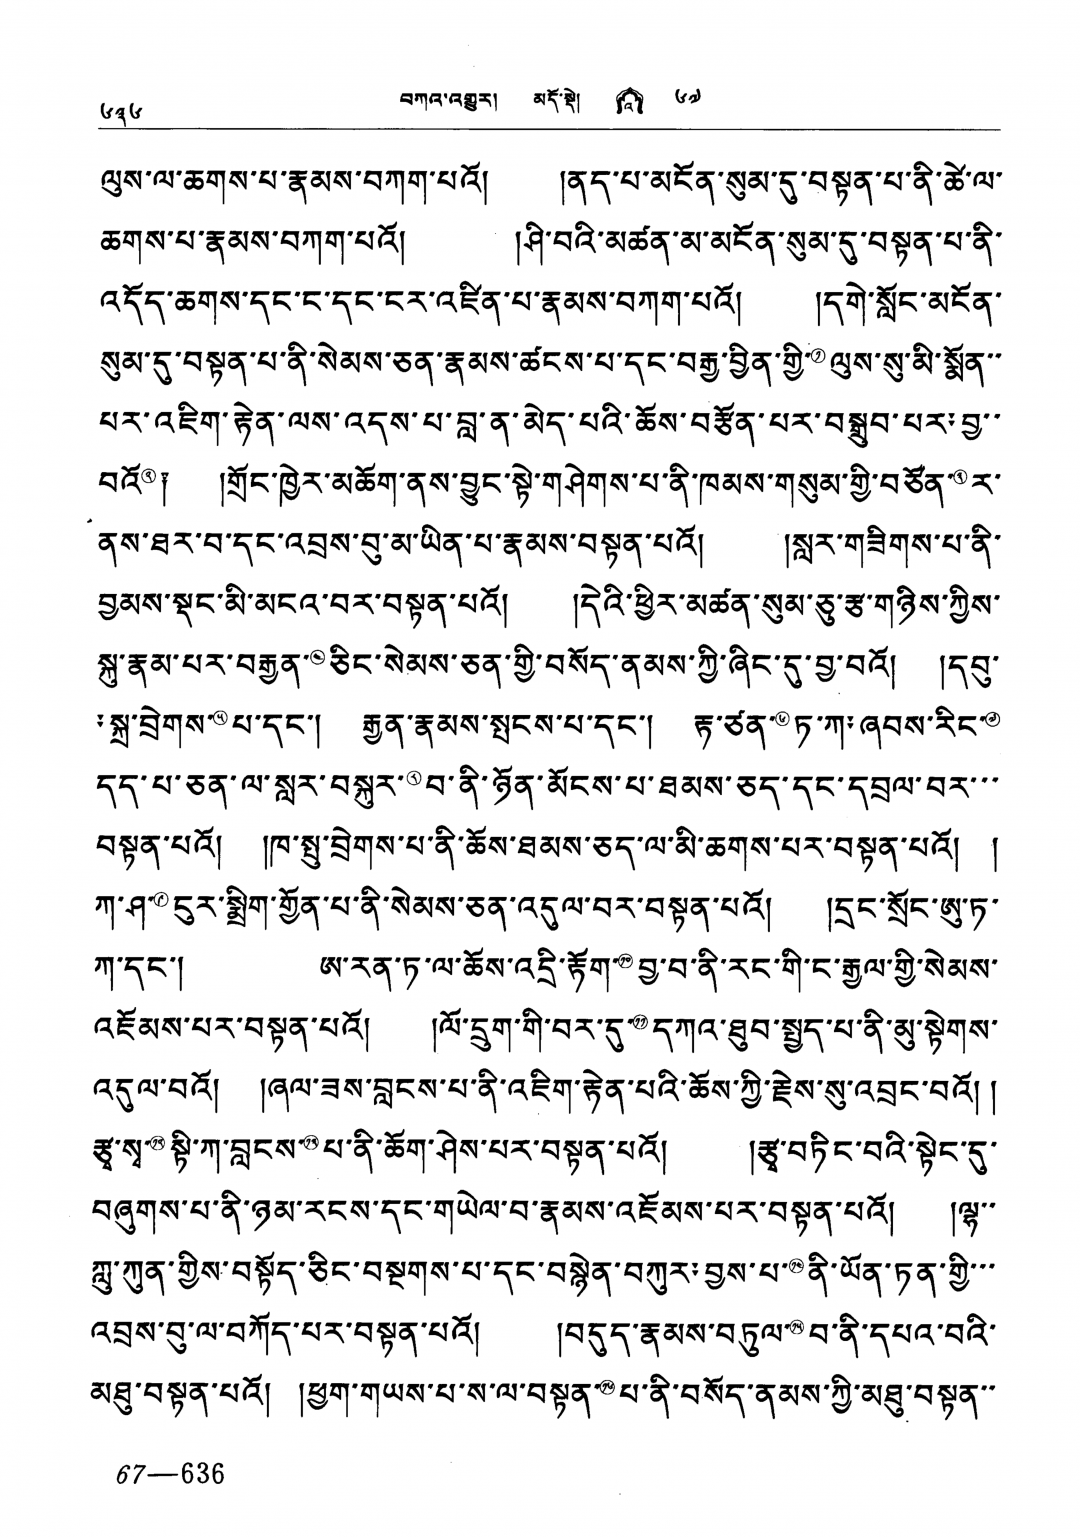 ༦༣༦ བཀའ་འགྱུར། མདོ་སྡེ། འ ༦༧
ལུས་ལ་ཆགས་པ་རྣམས་བཀག་པའོ། །ནད་པ་མངོན་སུམ་དུ་བསྟན་པ་ནི་ཚེ་ལ་
ཆགས་པ་རྣམས་བཀག་པའོ། །ཤི་བའི་མཚན་མ་མངོན་སུམ་དུ་བསྟན་པ་ནི་
འདོད་ཆགས་དང་ང་དང་ངར་འཛིན་པ་རྣམས་བཀག་པའོ། །དགེ་སློང་མངོན་
སུམ་དུ་བསྟན་པ་ནི་སེམས་ཅན་རྣམས་ཚངས་པ་དང་བརྒྱ་བྱིན་གྱི་① ལུས་སུ་མི་སྨོན་་
པར་འཇིག་རྟེན་ལས་འདས་པ་བླ་ན་མེད་པའི་ཆོས་བརྩོན་པར་བསྒྲུབ་པར༌བྱ་་
བའོ② ། །གྲོང་ཁྱེར་མཆོག་ནས་བྱུང་སྟེ་གཤེགས་པ་ནི་ཁམས་གསུམ་གྱི་བཙོན་③ར་
ནས་ཐར་བ་དང་འབྲས་བུ་མ་ཡིན་པ་རྣམས་བསྟན་པའོ། །སླར་གཟིགས་པ་ནི་
བྱམས་སྡང་མི་མངའ་བར་བསྟན་པའོ། །དེའི་ཕྱིར་མཚན་སུམ་ཅུ་རྩ་གཉིས་ཀྱིས་
སྐུ་རྣམ་པར་བརྒྱན་④ཅིང་སེམས་ཅན་གྱི་བསོད་ནམས་ཀྱི་ཞིང་དུ་བྱ་བའོ། །དབུ་
སྐྲ་བྲེགས་⑤པ་དང་། རྒྱན་རྣམས་སྤངས་པ་དང་། རྟ་ཙན་⑥ཏ་ཀ་ཞབས་རིང་⑦
དད་པ་ཅན་ལ་སླར་བསྐུར་⑧བ་ནི་ཉོན་མོངས་པ་ཐམས་ཅད་དང་དབྲལ་བར་་་
བསྟན་པའོ། །ཁ་སྤུ་བྲེགས་པ་ནི་ཆོས་ཐམས་ཅད་ལ་མི་ཆགས་པར་བསྟན་པའོ། །
ཀ་ཤ་⑨དུར་སྨྲིག་གྱོན་པ་ནི་སེམས་ཅན་འདུལ་བར་བསྟན་པའོ། །དྲང་སྲོང་ཨུ་ཏ་
ཀ་དང་། ཨ་རན་ཏ་ལ་ཆོས་འདྲི་རྟོག་⑩བྱ་བ་ནི་རང་གི་ང་རྒྱལ་གྱི་སེམས་
འཇོམས་པར་བསྟན་པའོ། །ལོ་དྲུག་གི་བར་དུ་⑪དཀའ་ཐུབ་སྤྱད་པ་ནི་མུ་སྟེགས་
འདུལ་བའོ། །ཞལ་ཟས་བླངས་པ་ནི་འཇིག་རྟེན་པའི་ཆོས་ཀྱི་རྗེས་སུ་འབྲང་བའོ། །
རྩྭ་སྭ་⑫སྟི་ཀ་བླངས་⑬པ་ནི་ཆོག་ཤེས་པར་བསྟན་པའོ། །རྩྭ་བཏིང་བའི་སྟེང་དུ་
བཞུགས་པ་ནི་ཉམ་རངས་དང་གཡེལ་བ་རྣམས་འཇོམས་པར་བསྟན་པའོ། །ལྷ་་
ཀླུ་ཀུན་གྱིས་བསྟོད་ཅིང་བསྔགས་པ་དང་བསྙེན་བཀུར་བྱས་པ་⑭ནི་ཡོན་ཏན་གྱི་་་
འབྲས་བུ་ལ་བཀོད་པར་བསྟན་པའོ། །བདུད་རྣམས་བཏུལ་⑮བ་ནི་དཔའ་བའི་
མཐུ་བསྟན་པའོ། །ཕྱག་གཡས་པ་ས་ལ་བསྟན་⑯པ་ནི་བསོད་ནམས་ཀྱི་མཐུ་བསྟན་་
67—636